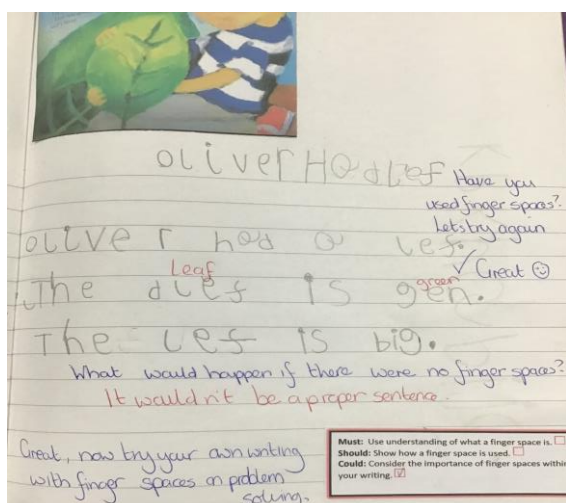 oLiverHadLef
Have you
used finger spaces?
Lets try again
oLiVe r had a Lef.
✓ Great ☺
Leaf green
The dLef is gen.
The Lef is big.
What would happen if there were no finger spaces?
It wouldn't be a proper sentence.
Great, now try your own writing
with finger spaces on problem
solving.
Must: Use understanding of what a finger space is. ☐
Should: Show how a finger space is used. ☐
Could: Consider the importance of finger spaces within
your writing. ☑